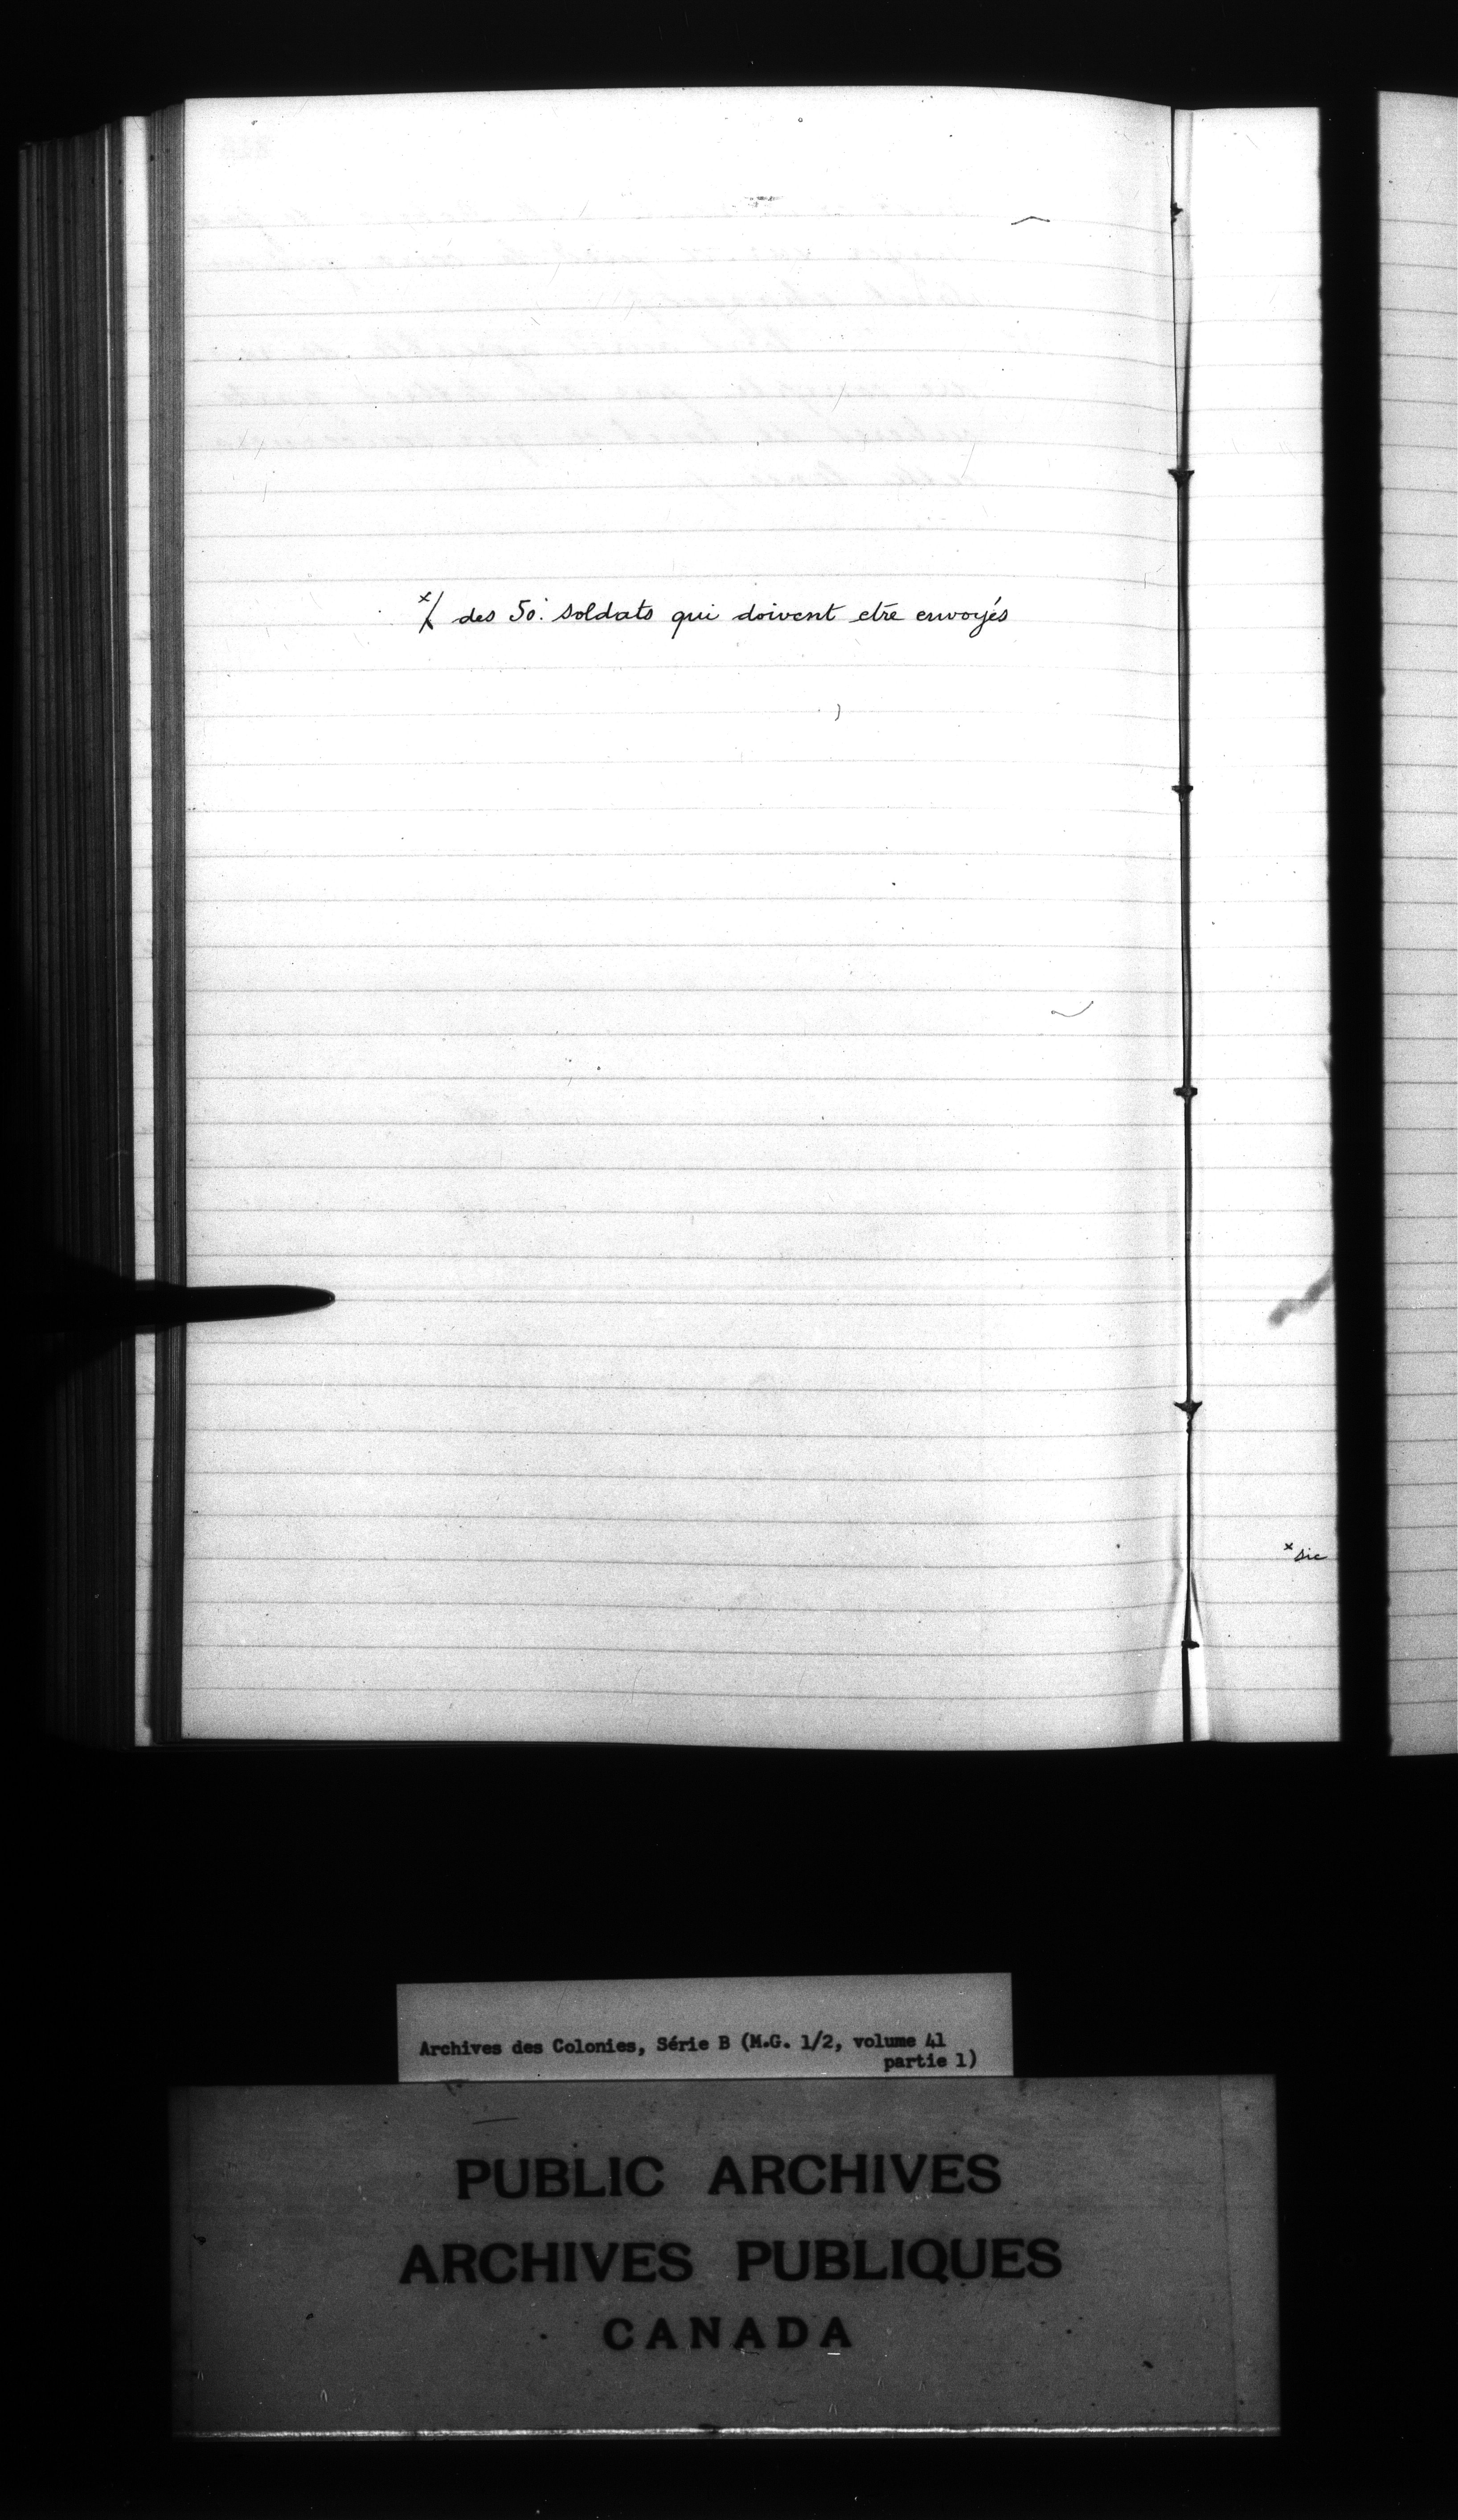 x/ des 50. soldats qui doivent etre envoyés
x sic
Archives des Colonies, Série B (M.G. 1/2, volume 41
partie 1)
PUBLIC ARCHIVES
ARCHIVES PUBLIQUES
CANADA